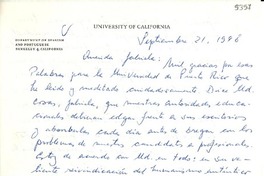 9351
UNIVERSITY OF CALIFORNIA
DEPARTMENT OF SPANISH
AND PORTUGUESE
BERKELEY 4, CALIFORNIA
Septiembre 21, 1946
Querida Gabriela: Mil gracias por esas
Palabras para la Universidad de Puerto Rico que
he leído y meditado cuidadosamente. Dice Ud.
cosas, Gabriela, que nuestras autoridades educa-
cionales debieran exigir frente a sus escritorios
y absorberlas cada día antes de bregar en los
problemas de nuestros candidatos a profesionales.
Estoy de acuerdo con Ud. en todo: en su va-
liente reivindicación del humanismo auténtico